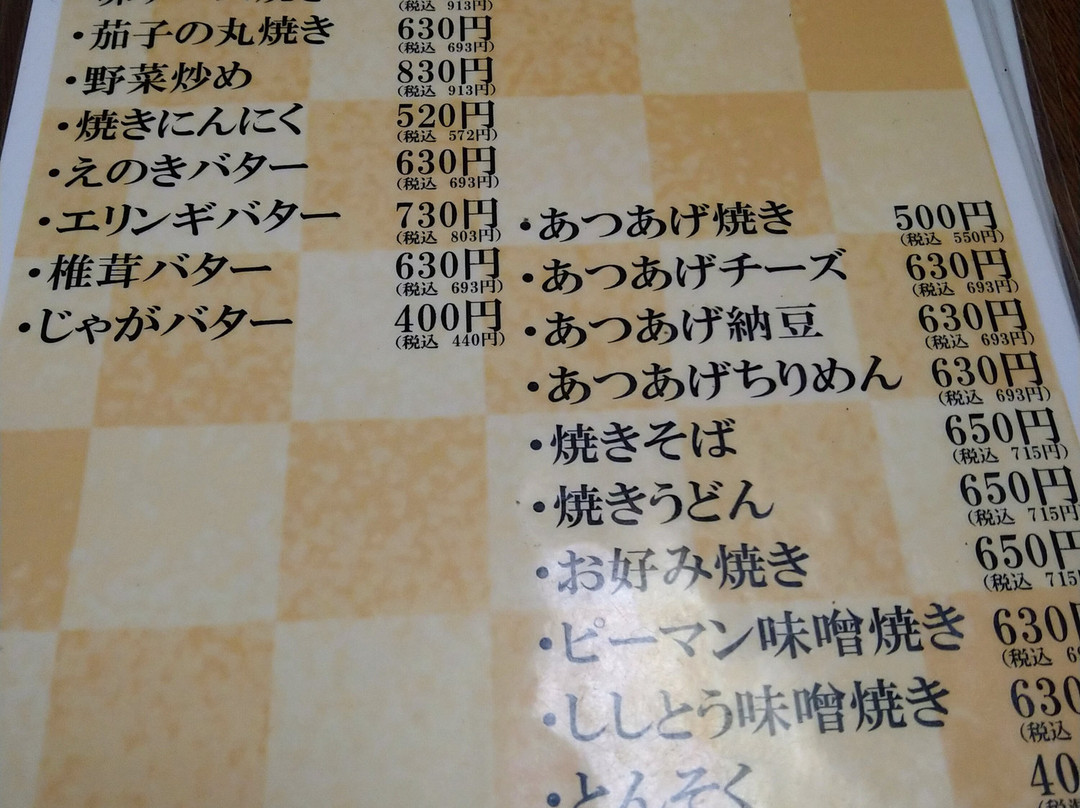 (税込 913円)
・茄子の丸焼き 630円
(税込 693円)
・野菜炒め 830円
(税込 913円)
・焼きにんにく 520円
(税込 572円)
・えのきバター 630円
(税込 693円)
・エリンギバター 730円
(税込 803円)
・椎茸バター 630円
(税込 693円)
・じゃがバター 400円
(税込 440円)
・あつあげ焼き 500円
(税込 550円)
・あつあげチーズ 630円
(税込 693円)
・あつあげ納豆 630円
(税込 693円)
・あつあげちりめん 630円
(税込 693円)
・焼きそば 650円
(税込 715円)
・焼きうどん 650円
(税込 715円
・お好み焼き 650円
(税込 715
・ピーマン味噌焼き 630円
(税込
・ししとう味噌焼き 630
(税込
・とんそく 40